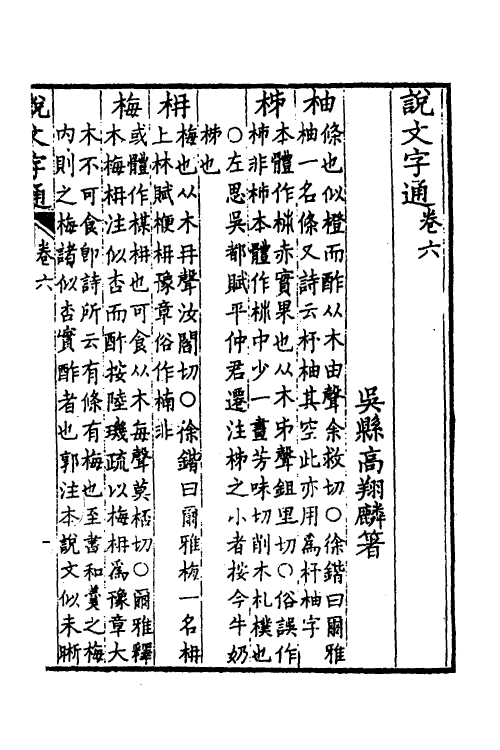 說文字通卷六
吳縣高翔麟箸
柚
條也似橙而酢从木由聲余救切〇徐鍇曰爾雅
柚一名條又詩云杼柚其空此亦用爲杼柚字
柹
本體作𣐈赤實果也从木𠂔聲鉏里切〇俗誤作
柿非柿本體作㭊中少一畫芳味切削木札樸也
〇左思吳都賦平仲君遷注柹之小者按今牛奶
柹也
枏
梅也从木冄聲汝閻切〇徐鍇曰爾雅梅一名枏
上林賦楩枏豫章俗作楠非
梅
或體作楳枏也可食从木每聲莫桮切〇爾雅釋
木梅枏注似杏而酢按陸璣疏以梅枏爲豫章大
木不可食卽詩所云有條有梅也至書和羹之梅
內則之梅諸似杏實酢者也郭注本說文似未晰
說文字通
卷六
一